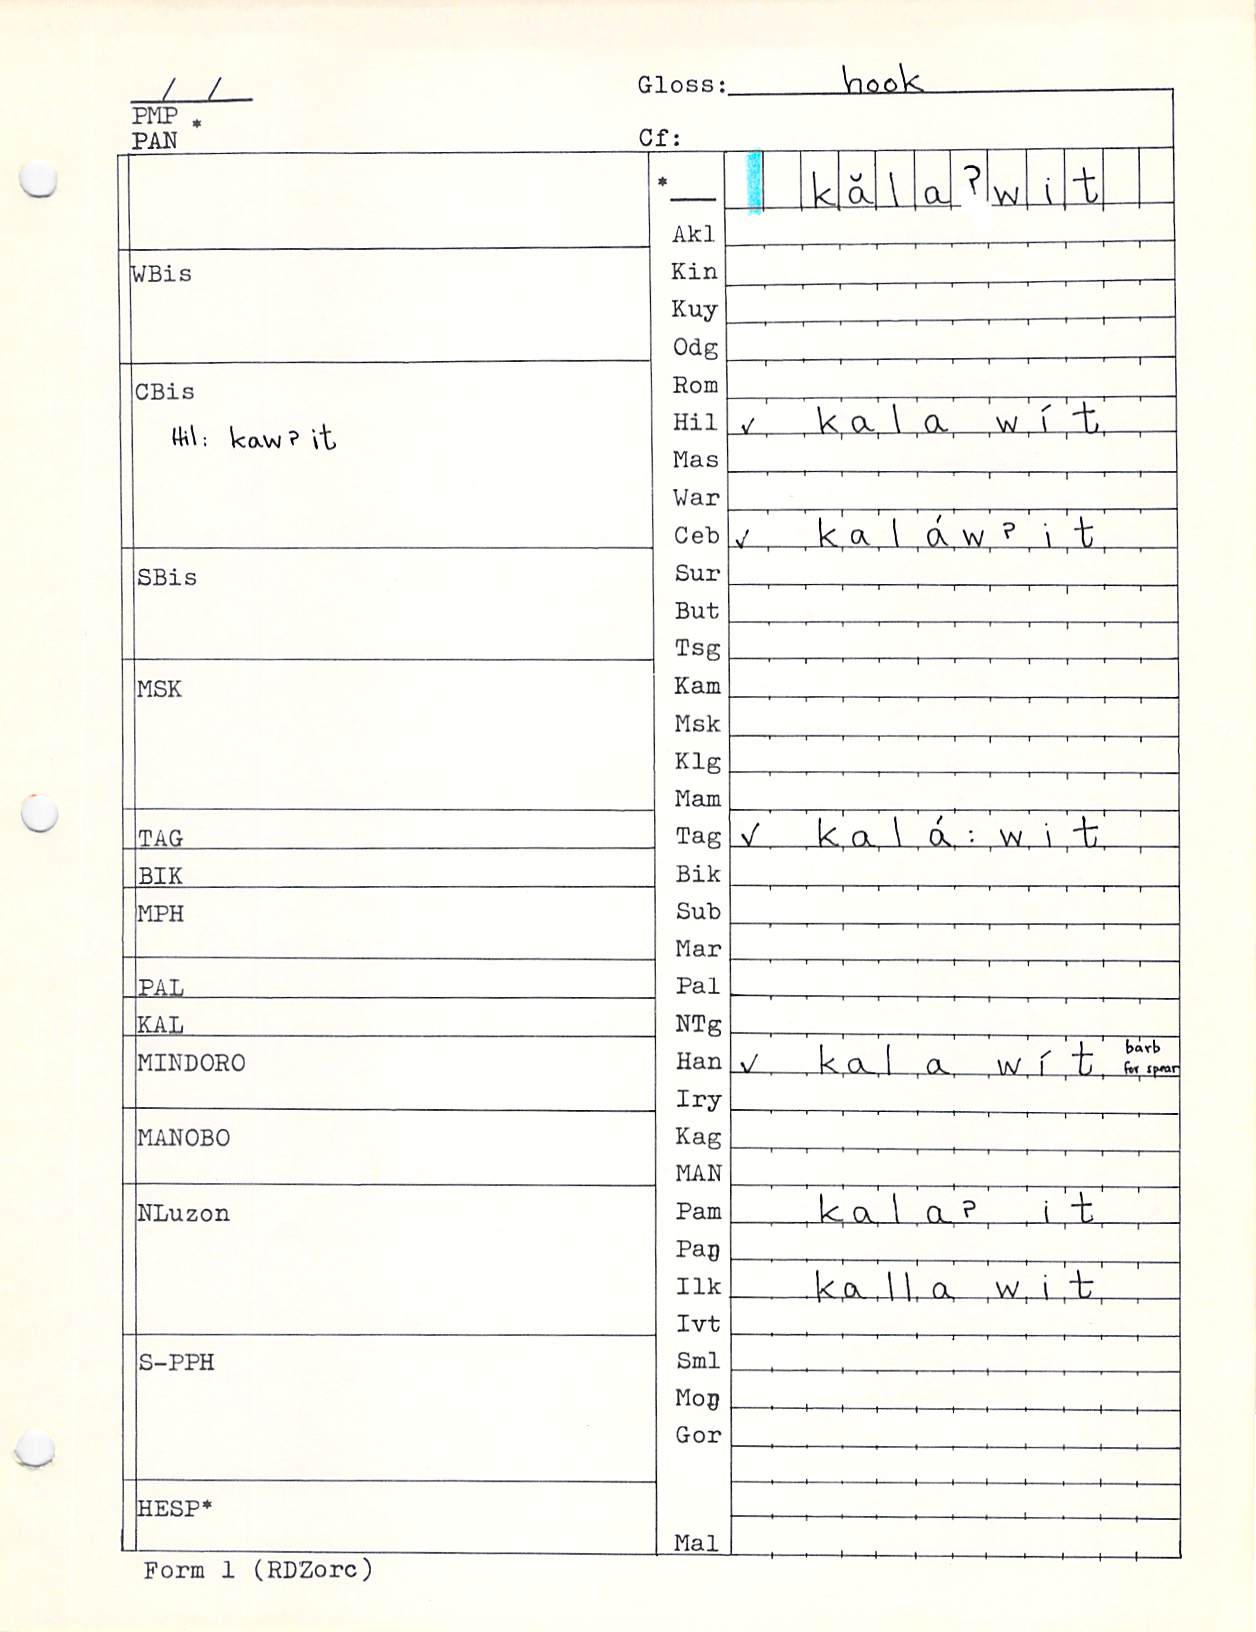 / /
Gloss: hook
PMP *
PAN
Cf:
* kăla?wit
Akl
WBis
Kin
Kuy
Odg
CBis
Rom
Hil ✓ kala wít
Hil: kaw?it
Mas
War
Ceb ✓ kaláw?it
SBis
Sur
But
Tsg
MSK
Kam
Msk
Klg
Mam
TAG
Tag ✓ kalá:wit
BIK
Bik
MPH
Sub
Mar
PAL
Pal
KAL
NTg
MINDORO
Han ✓ kala wít barb for spear
Iry
MANOBO
Kag
MAN
NLuzon
Pam kala? it
Paŋ
Ilk kalla wit
Ivt
S-PPH
Sml
Moŋ
Gor
HESP*
Mal
Form 1 (RDZorc)